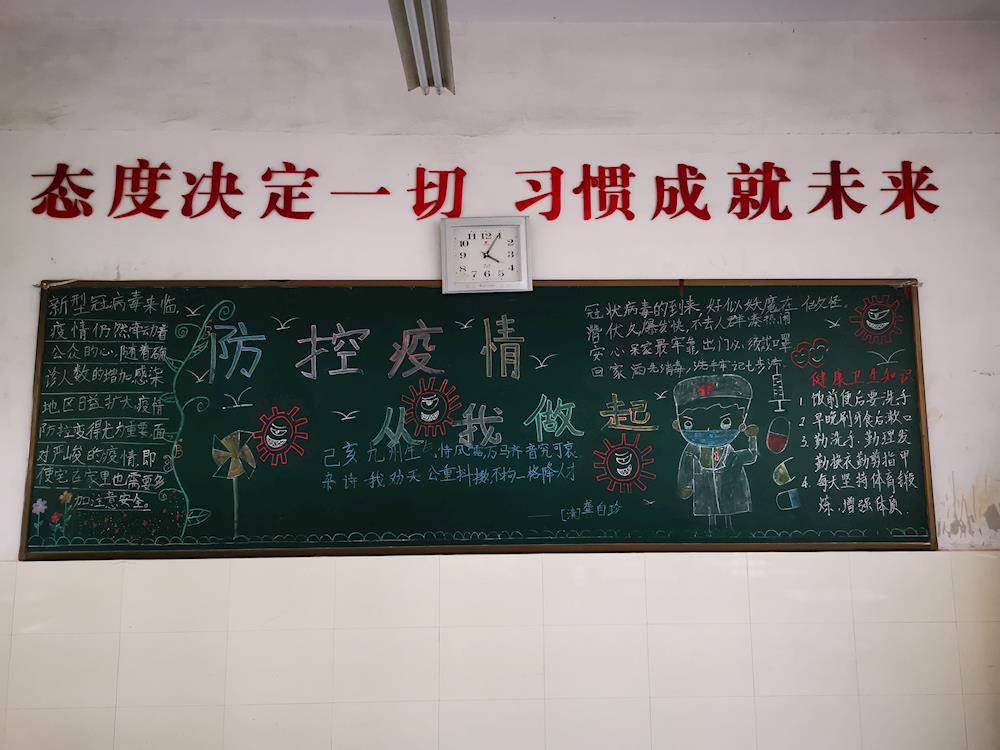 态度决定一切 习惯成就未来
11 12 1
10 2
9 3
8 4
7 6 5
新型冠病毒来临,
疫情仍然牵动着
公众的心,随着确
诊人数的增加感染
地区日益扩大,疫情
防控变得尤为重要,面
对严峻的疫情,即
使宅在家里也需要多
加注意安全。
防控疫情
从我做起
己亥 九州生气恃风雷万马齐喑究可哀
杂诗 我劝天公重抖擞不拘一格降人才
——[清]龚自珍
冠状病毒的到来,好似妖魔在作怪。
潜伏久爆发快,不去人群凑热闹
安心呆家最牢靠,出门必须戴口罩
回家酒先消毒,洗手牢记七步
健康卫生知识
1. 饭前便后要洗手
2. 早晚刷牙食后漱口
3. 勤洗手、勤理发
勤换衣勤剪指甲
4. 每天坚持体育锻
炼,增强体质